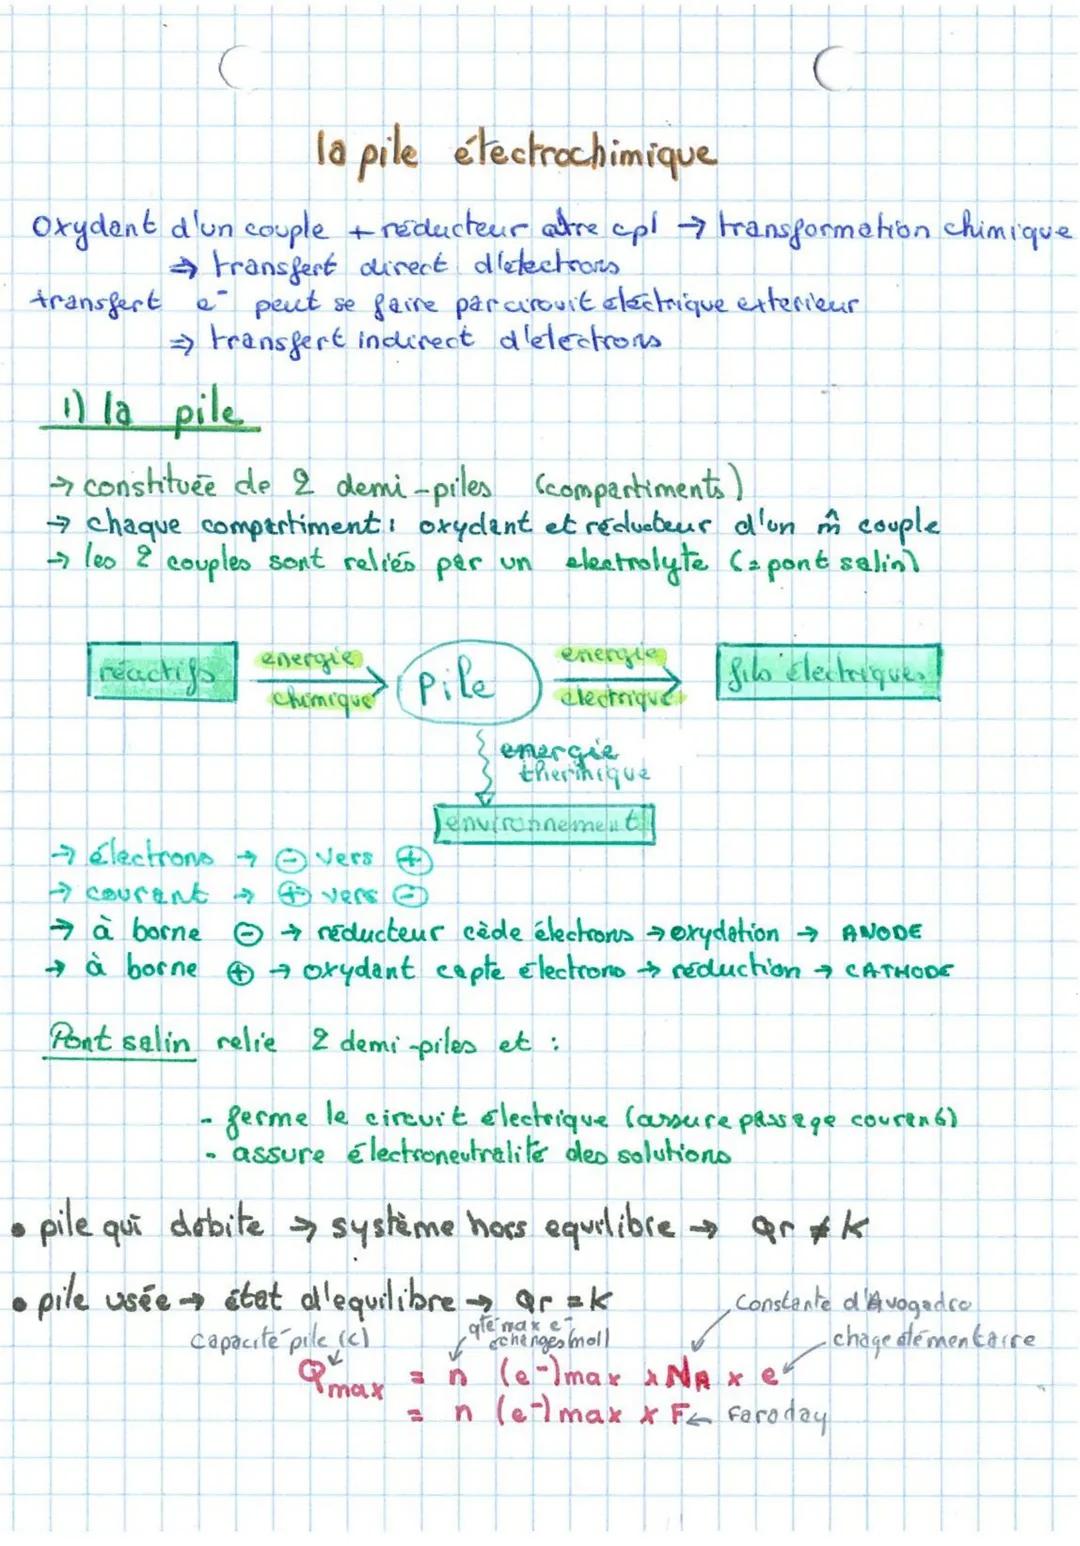 la pile électrochimique
Oxydant d'un couple + réducteur autre cpl → transformation chimique
⇒ transfert direct d'électrons
transfert e⁻ peut se faire par circuit électrique exterieur
⇒ transfert indirect d'électrons
1) la pile
→ constituée de 2 demi-piles (compartiments)
→ chaque compartiment : oxydant et réducteur d'un m̂ couple
→ les 2 couples sont reliés par un electrolyte (= pont salin)
réactifs energie chimique Pile energie electrique fils électriques
energie
thermique
environnement
→ électrons → ⊖ vers ⊕
→ courant → ⊕ vers ⊖
→ à borne ⊖ → réducteur cède électrons → oxydation → ANODE
→ à borne ⊕ → oxydant capte électrons → réduction → CATHODE
Pont salin relie 2 demi-piles et :
- ferme le circuit électrique (assure passage courant)
- assure électroneutralité des solutions
• pile qui débite → système hors equilibre → Qr ≠ K
• pile usée → état d'equilibre → Qr = K
Constante d'Avogadro
capacité pile (c) qté max e⁻ échangés (mol) chage élémentaire
Qmax = n (e⁻)max x NA x e
= n (e⁻) max x F ← Faraday